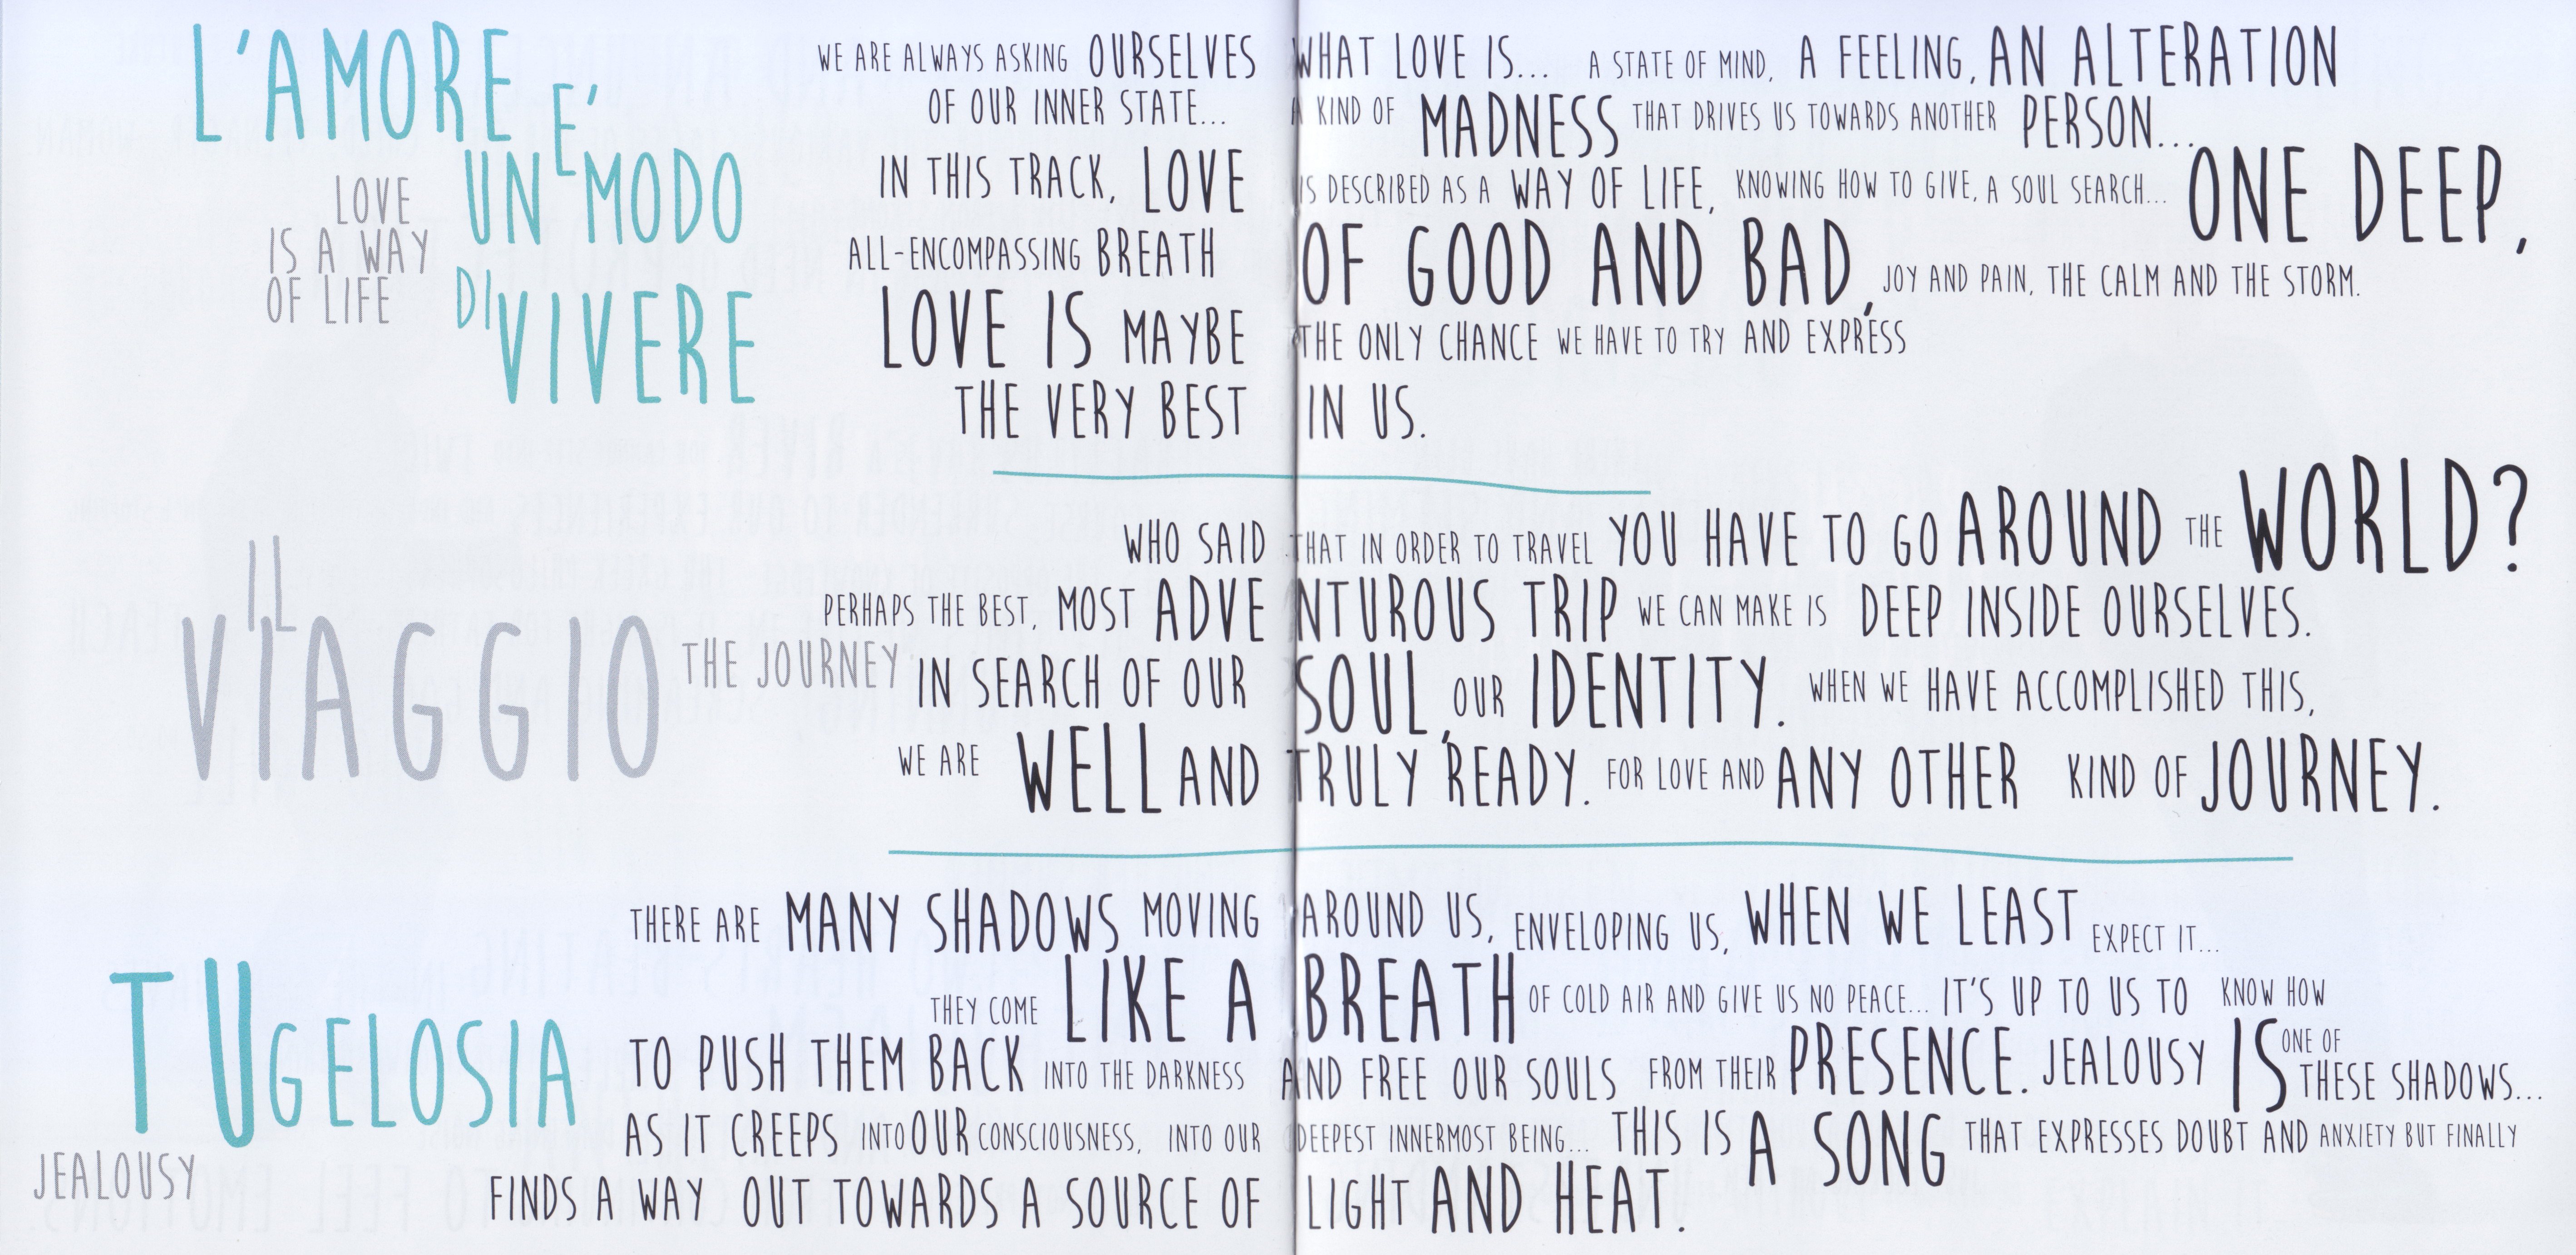 L'AMORE E'
UN MODO
DI VIVERE
LOVE
IS A WAY
OF LIFE
WE ARE ALWAYS ASKING OURSELVES WHAT LOVE IS... A STATE OF MIND, A FEELING, AN ALTERATION
OF OUR INNER STATE... A KIND OF MADNESS THAT DRIVES US TOWARDS ANOTHER PERSON...
IN THIS TRACK, LOVE IS DESCRIBED AS A WAY OF LIFE, KNOWING HOW TO GIVE, A SOUL SEARCH... ONE DEEP,
ALL-ENCOMPASSING BREATH OF GOOD AND BAD, JOY AND PAIN, THE CALM AND THE STORM.
LOVE IS MAYBE THE ONLY CHANCE WE HAVE TO TRY AND EXPRESS
THE VERY BEST IN US.
IL
VIAGGIO
THE JOURNEY
WHO SAID THAT IN ORDER TO TRAVEL YOU HAVE TO GO AROUND THE WORLD?
PERHAPS THE BEST, MOST ADVENTUROUS TRIP WE CAN MAKE IS DEEP INSIDE OURSELVES.
IN SEARCH OF OUR SOUL, OUR IDENTITY. WHEN WE HAVE ACCOMPLISHED THIS,
WE ARE WELL AND TRULY READY. FOR LOVE AND ANY OTHER KIND OF JOURNEY.
TU GELOSIA
JEALOUSY
THERE ARE MANY SHADOWS MOVING AROUND US, ENVELOPING US, WHEN WE LEAST EXPECT IT...
THEY COME LIKE A BREATH OF COLD AIR AND GIVE US NO PEACE... IT'S UP TO US TO KNOW HOW
TO PUSH THEM BACK INTO THE DARKNESS AND FREE OUR SOULS FROM THEIR PRESENCE. JEALOUSY IS ONE OF THESE SHADOWS...
AS IT CREEPS INTO OUR CONSCIOUSNESS, INTO OUR DEEPEST INNERMOST BEING... THIS IS A SONG THAT EXPRESSES DOUBT AND ANXIETY BUT FINALLY
FINDS A WAY OUT TOWARDS A SOURCE OF LIGHT AND HEAT.